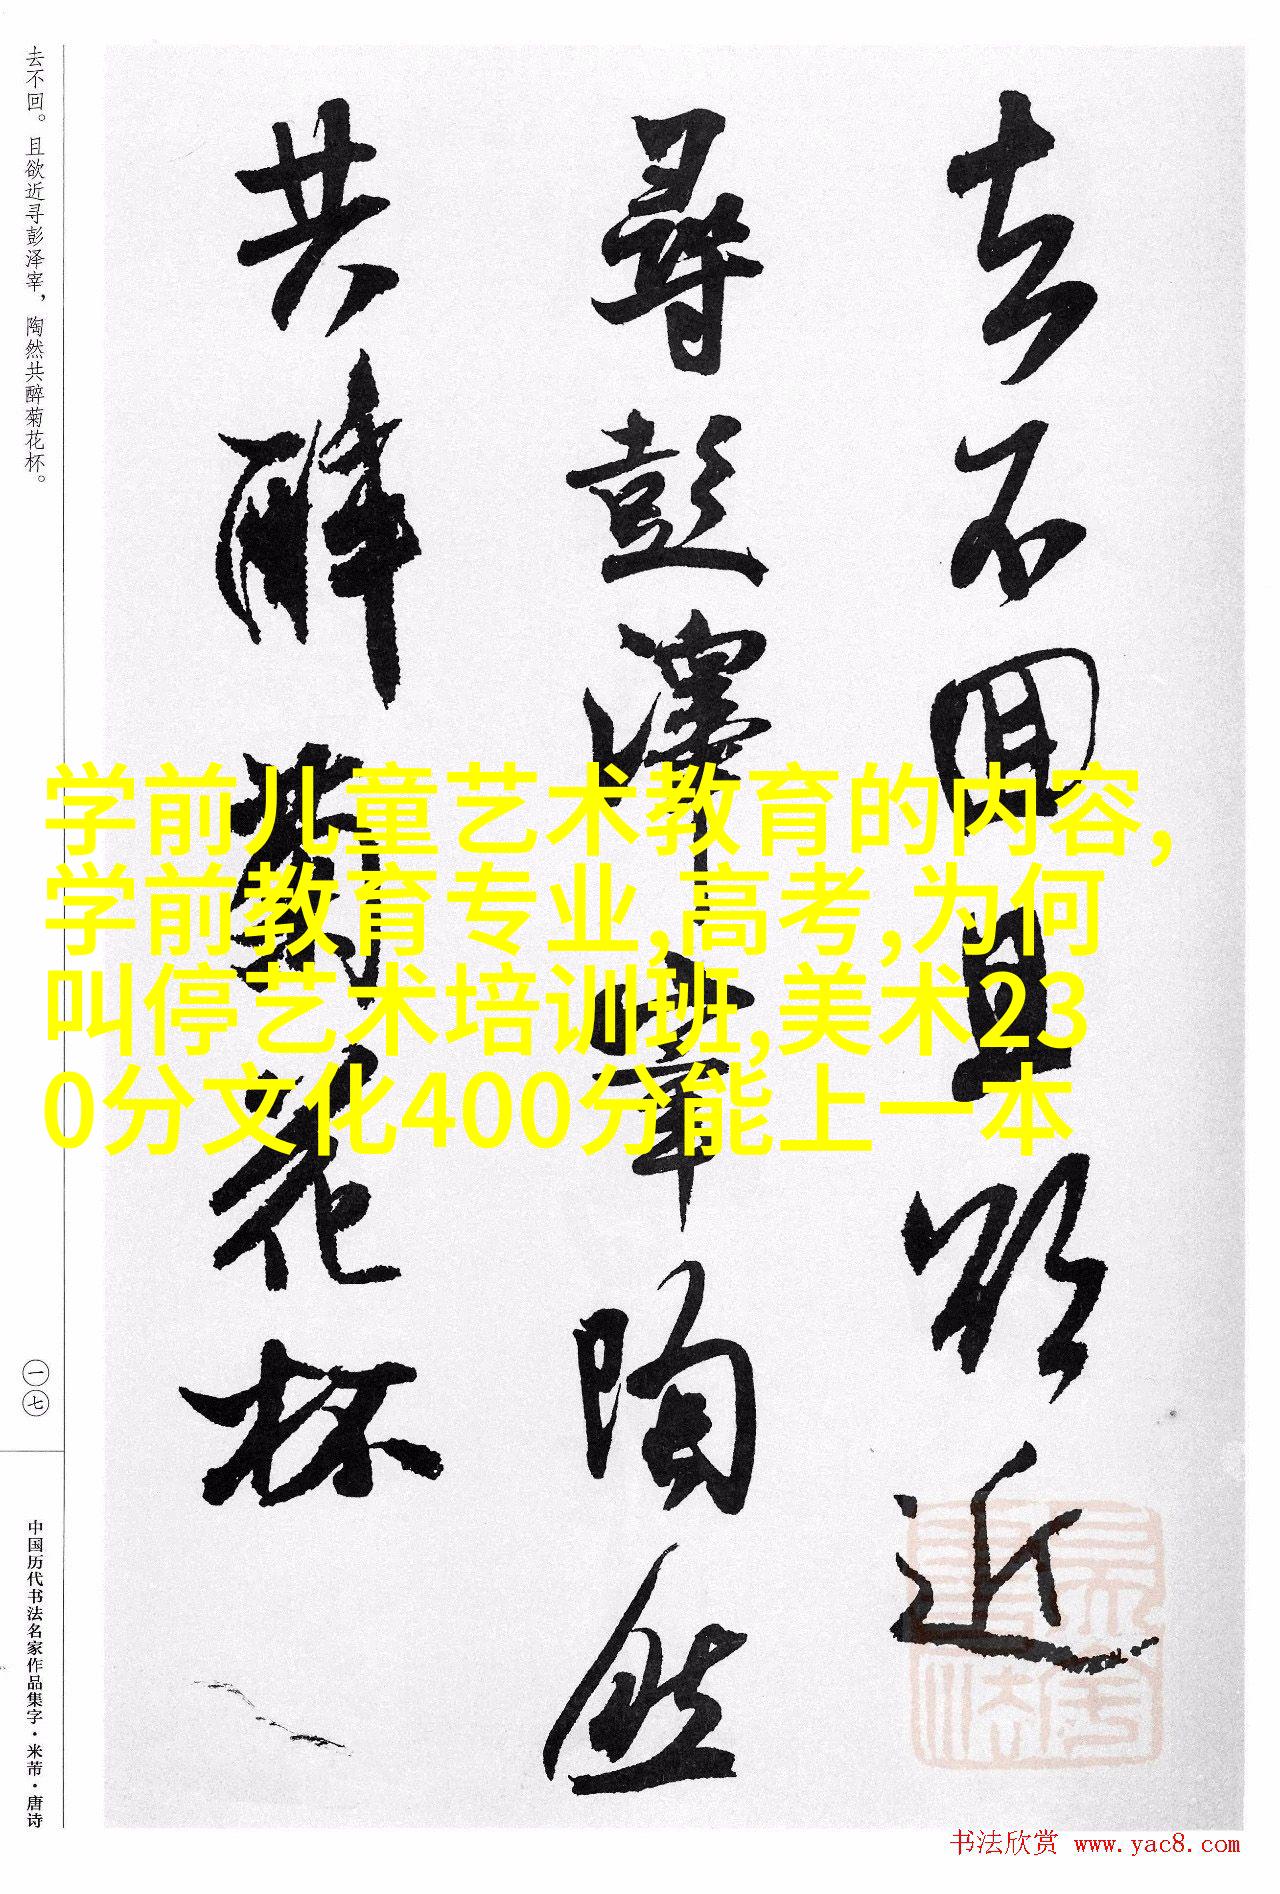 去不回且欲近
尋彭澤宰陶然
共醉菊花杯
去不回。且欲近寻彭泽宰，陶然共醉菊花杯。
一七
中国历代书法名家作品集字·米芾·唐诗
学前儿童艺术教育的内容,
学前教育专业,高考,为何
叫停艺术培训班,美术23
0分文化400分能上一本
书法欣赏 www.yac8.com